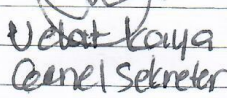 Vedat Kaya
Genel Sekreter